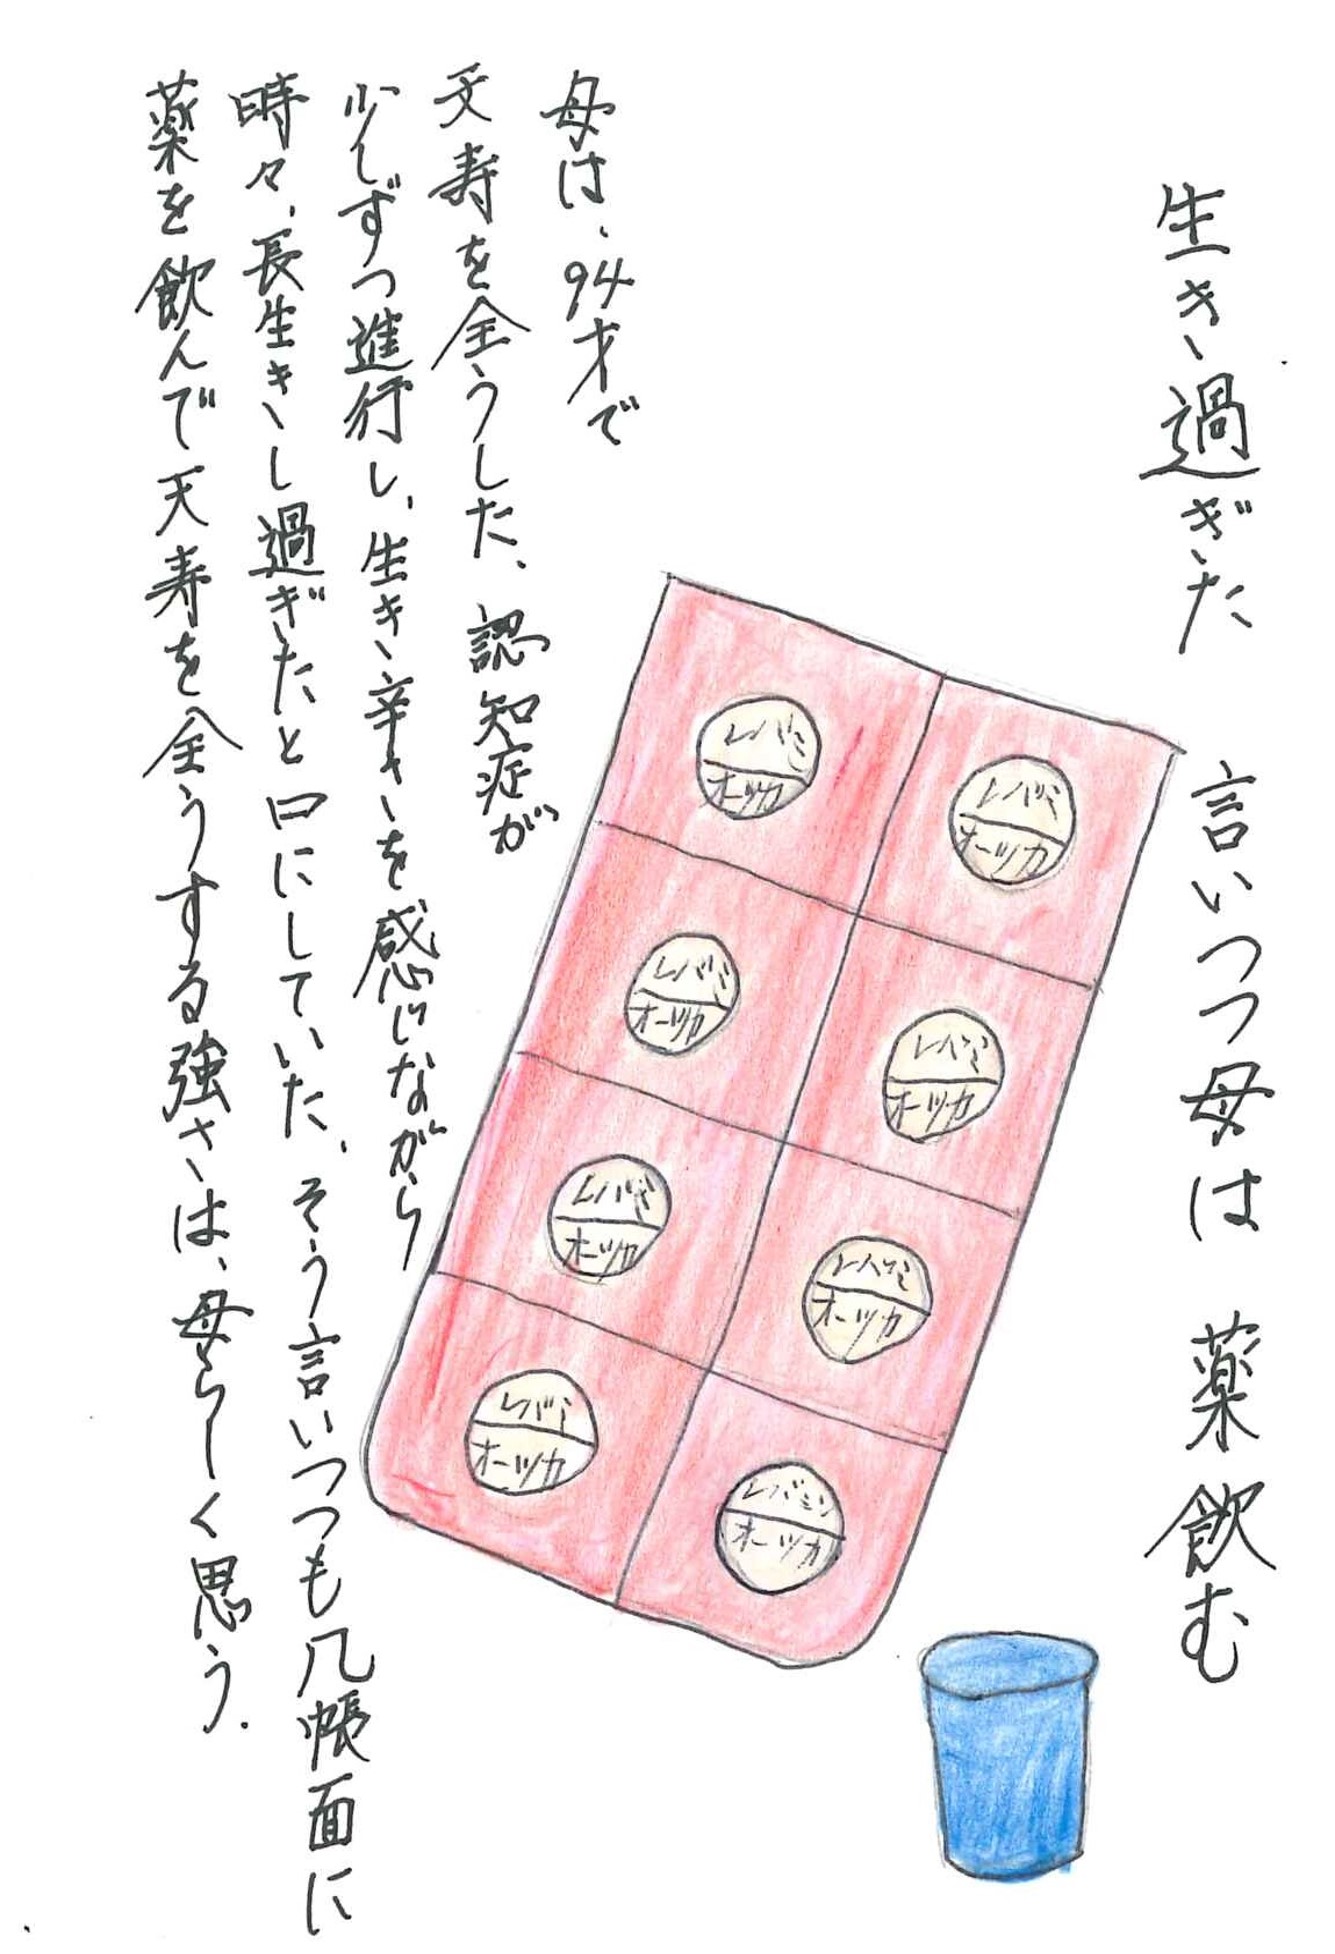 生き過ぎた 言いつつ母は 薬飲む
母は、94才で
天寿を全うした、認知症が
少しずつ進行し、生き辛さを感じながら
時々、長生きし過ぎたと口にしていた、そう言いつつも几帳面に
薬を飲んで天寿を全うする強さは、母らしく思う.
レバミ
オーツカ
レバミ
オーツカ
レバミ
オーツカ
レバミ
オーツカ
レバミ
オーツカ
レバミ
オーツカ
レバミ
オーツカ
レバミ
オーツカ